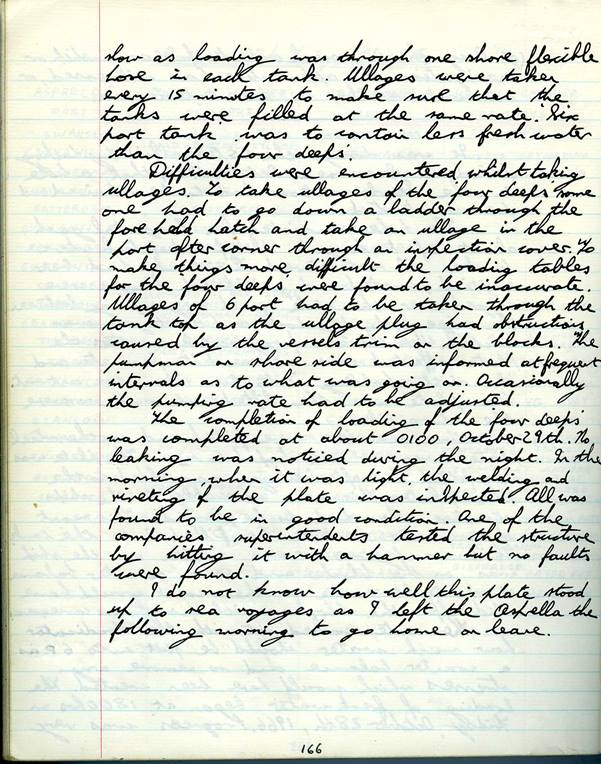 slow as loading was through one shore flexible
hose in each tank. Ullages were taken
every 15 minutes to make sure that the
tanks were filled at the same rate. 'Six
port tank was to contain less fresh water
than the four deeps'.
Difficulties were encountered whilst taking
ullages. To take ullages of the four deeps some
one had to go down a ladder through the
fore hold hatch and take an ullage in the
port after corner through an inspection cover. To
make things more difficult the loading tables
for the four deeps were found to be inaccurate.
Ullages of 6 port had to be taken through the
tank top as the ullage plug had obstructions
caused by the vessels trim on the blocks. The
pumpman on shore side was informed at frequent
intervals as to what was going on. Occasionally
the pumping rate had to be adjusted.
The completion of loading of the 'four deeps'
was completed at about 0100, October 29th. No
leaking was noticed during the night. In the
morning, when it was light, the welding and
riveting of the plate was inspected. All was
found to be in good condition. One of the
companies superintendents tested the structure
by hitting it with a hammer but no faults
were found.
I do not know how well this plate stood
up to sea voyages as I left the Osprella the
following morning to go home on leave.
166